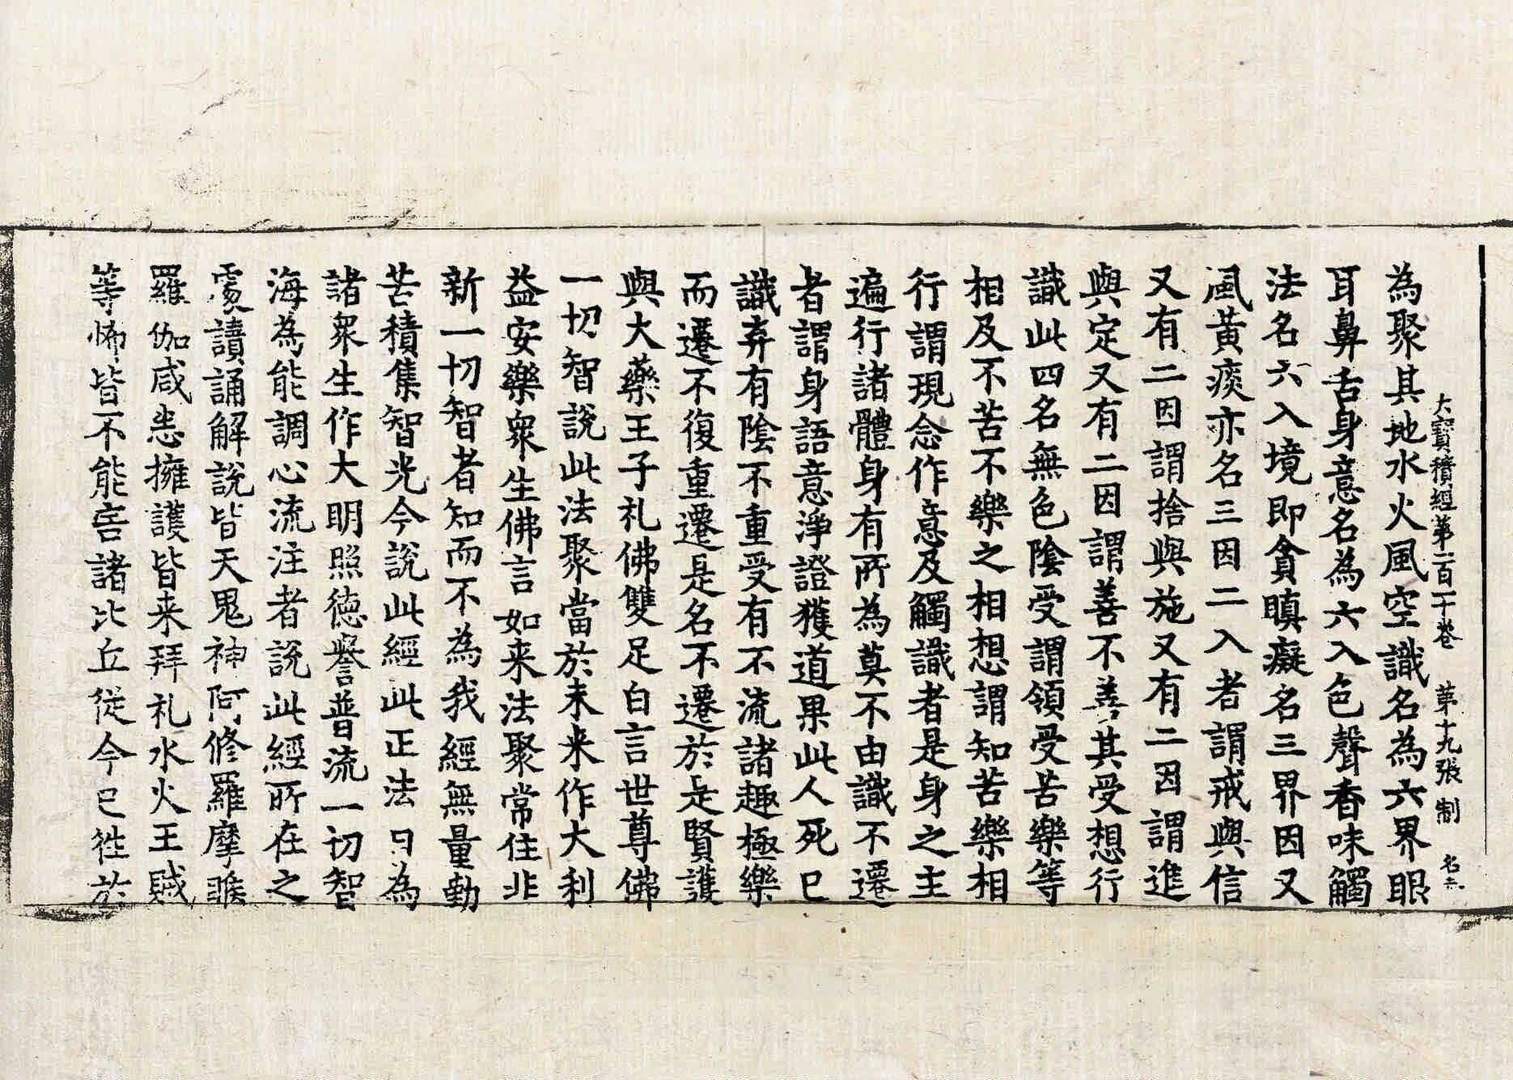 大寶積經第一百一十卷 第十九張 制 名六
為聚其地水火風空識名為六界眼
耳鼻舌身意名為六入色聲香味觸
法名六入境即貪瞋癡名三界因又
風黃痰亦名三因二入者謂戒與信
又有二因謂捨與施又有二因謂進
與定又有二因謂善不善其受想行
識此四名無色陰受謂領受苦樂等
相及不苦不樂之相想謂知苦樂相
行謂現念作意及觸識者是身之主
遍行諸體身有所為莫不由識不遷
者謂身語意淨證獲道果此人死已
識弃有陰不重受有不流諸趣極樂
而遷不復重遷是名不遷於是賢護
與大藥王子礼佛雙足白言世尊佛
一切智說此法聚當於未来作大利
益安樂衆生佛言如来法聚常住非
新一切智者知而不為我經無量勤
苦積集智光今說此經此正法日為
諸衆生作大明照德譽普流一切智
海為能調心流注者說此經所在之
處讀誦解說皆天鬼神阿修羅摩睺
羅伽咸悉擁護皆来拜礼水火王賊
等怖皆不能害諸比丘從今已往於